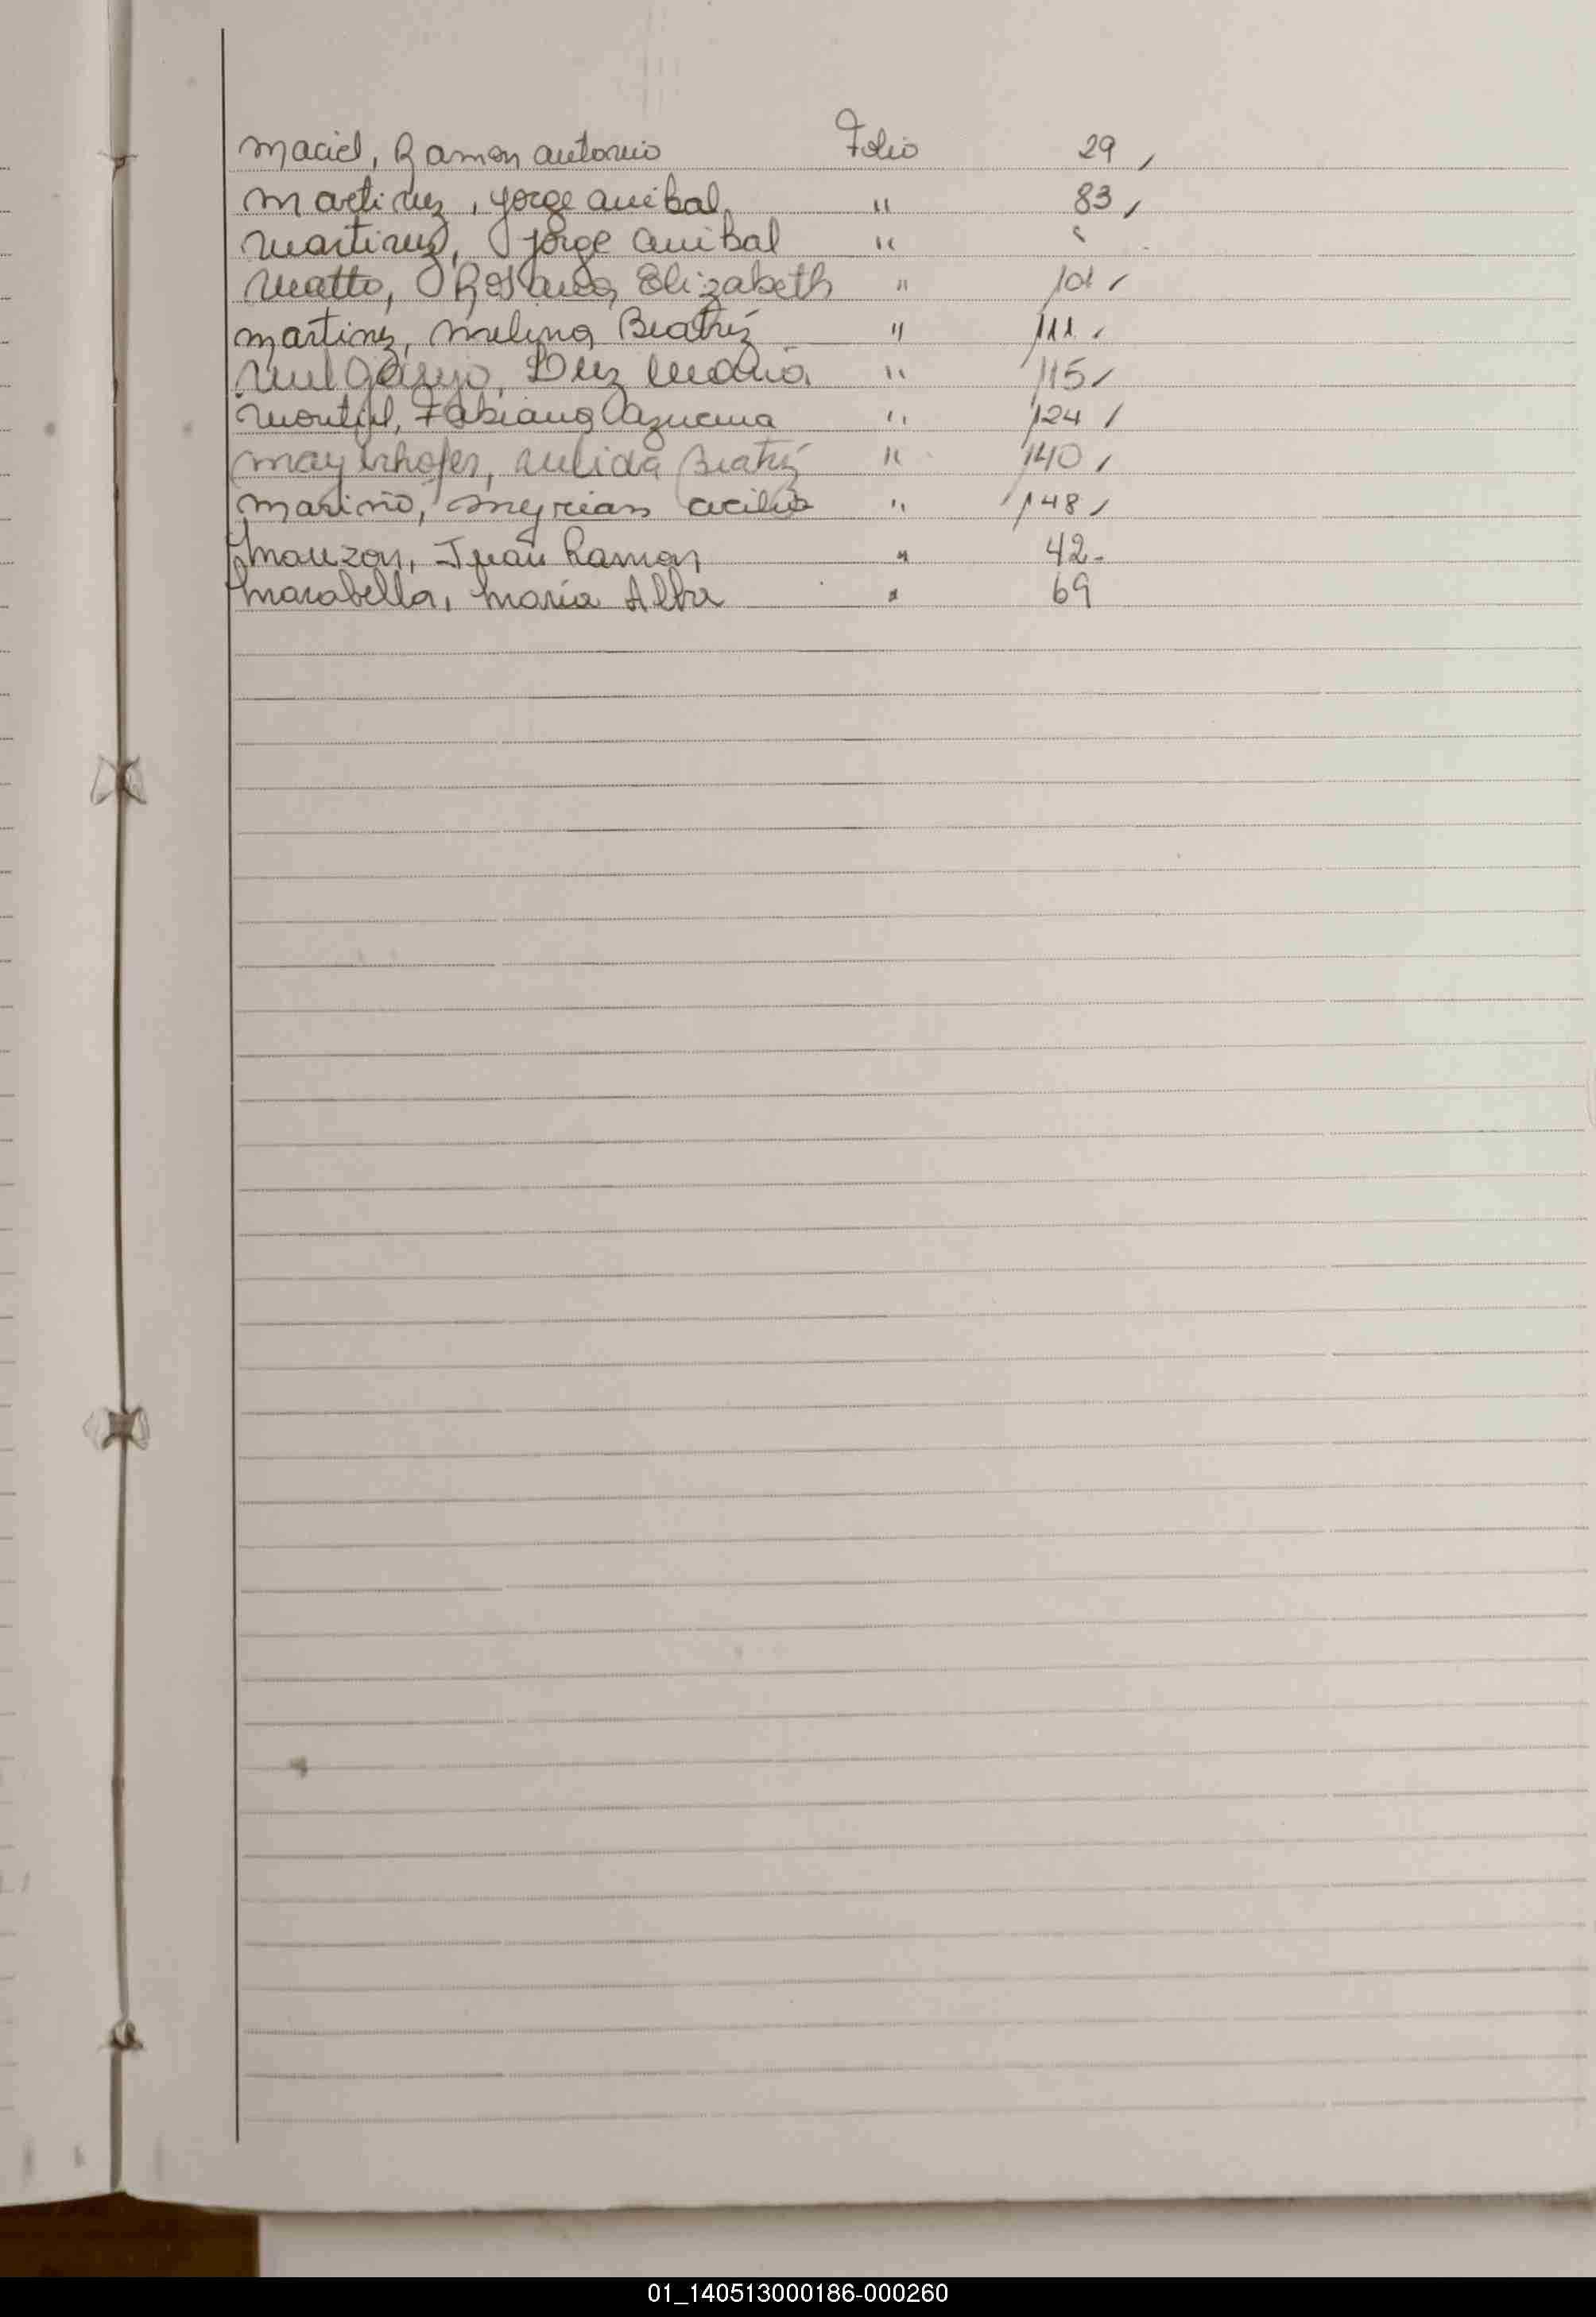 Maciel, Ramon Antonio Folio 29,
Martinez, Jorge Anibal, " 83,
Martinez, Jorge Anibal "
Matto, Rossana Elizabeth " 101,
Martinez, Melina Beatríz " 111,
Melgarejo, Luz María " 115,
Montiel, Fabiana Azucena " 124,
Mayerhofer, Nelida Beatríz " 140,
Mariño, Myrian Cecilia " 148,
Mauzon, Juan Ramon " 42-
Marabella, María Alba " 69
01_140513000186-000260